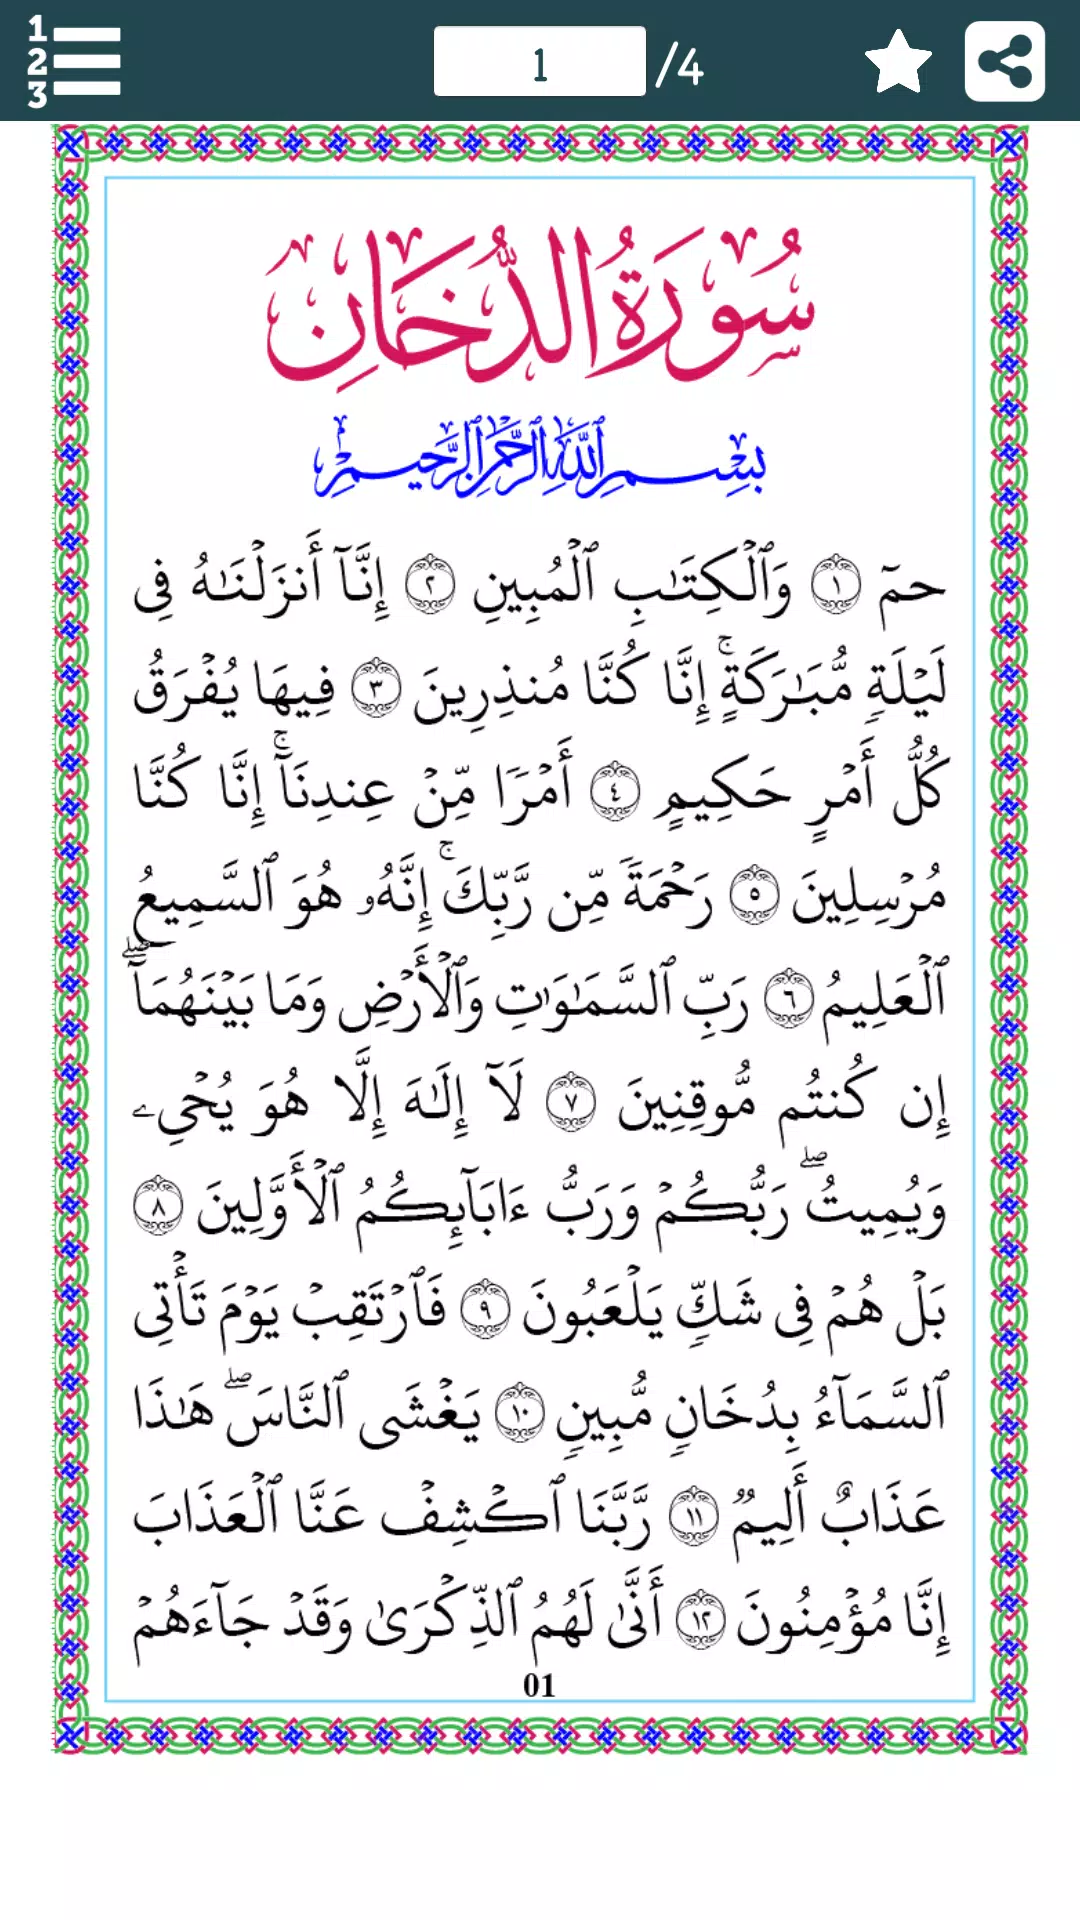 1
2
3
1
/4
سُورَةُ الدُّخَانِ
بِسْمِ ٱللَّهِ ٱلرَّحْمَٰنِ ٱلرَّحِيمِ
حمٓ ١ وَٱلْكِتَٰبِ ٱلْمُبِينِ ٢ إِنَّآ أَنزَلْنَٰهُ فِى
لَيْلَةٍ مُّبَٰرَكَةٍ ۚ إِنَّا كُنَّا مُنذِرِينَ ٣ فِيهَا يُفْرَقُ
كُلُّ أَمْرٍ حَكِيمٍ ٤ أَمْرًا مِّنْ عِندِنَآ ۚ إِنَّا كُنَّا
مُرْسِلِينَ ٥ رَحْمَةً مِّن رَّبِّكَ ۚ إِنَّهُۥ هُوَ ٱلسَّمِيعُ
ٱلْعَلِيمُ ٦ رَبِّ ٱلسَّمَٰوَٰتِ وَٱلْأَرْضِ وَمَا بَيْنَهُمَآ ۖ
إِن كُنتُم مُّوقِنِينَ ٧ لَآ إِلَٰهَ إِلَّا هُوَ يُحْىِۦ
وَيُمِيتُ ۖ رَبُّكُمْ وَرَبُّ ءَابَآئِكُمُ ٱلْأَوَّلِينَ ٨
بَلْ هُمْ فِى شَكٍّ يَلْعَبُونَ ٩ فَٱرْتَقِبْ يَوْمَ تَأْتِى
ٱلسَّمَآءُ بِدُخَانٍ مُّبِينٍ ١٠ يَغْشَى ٱلنَّاسَ ۖ هَٰذَا
عَذَابٌ أَلِيمٌ ١١ رَّبَّنَا ٱكْشِفْ عَنَّا ٱلْعَذَابَ
إِنَّا مُؤْمِنُونَ ١٢ أَنَّىٰ لَهُمُ ٱلذِّكْرَىٰ وَقَدْ جَآءَهُمْ
01